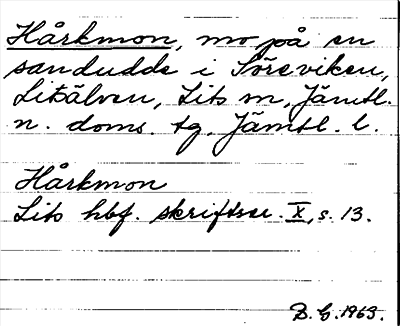 Hårkmon, mo på en
sandudde i Söreviken,
Litsälven, Lits sn, Jämtl.
n. doms. tg, Jämtl. l.
Hårkmon
Lits hbf. skriftser. X, s. 13.
D. G. 1963.